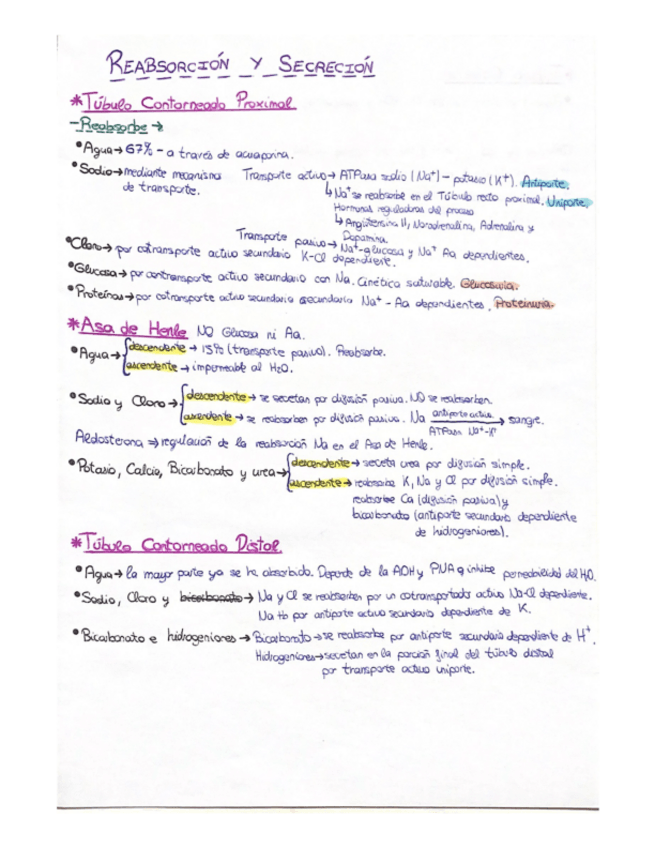 REABSORCIÓN Y SECRECIÓN
*Túbulo Contorneado Proximal
-Reabsorbe →
•Agua→67% - a través de acuaporina.
•Sodio→mediante mecanismo de transporte.
Transporte activo→ATPasa sodio (Na+) - potasio (K+). Antiporte.
↳Na+ se reabsorbe en el Túbulo recto proximal. Uniporte.
Hormonas reguladoras del proceso
↳Angiotensina II, Noradrenalina, Adrenalina y Dopamina.
Transporte pasivo→Na+-glucosa y Na+ Aa dependientes.
•Cloro→por cotransporte activo secundario K-Cl dependiente.
•Glucosa→por contransporte activo secundario con Na. Cinética saturable. Glucosuria.
•Proteínas→por cotransporte activo secundario secundario Na+ - Aa dependientes. Proteinuria.
*Asa de Henle NO Glucosa ni Aa.
•Agua→ descendente → 15% (transporte pasivo). Reabsorbe.
ascendente → impermeable al H2O.
•Sodio y Cloro→ descendente→ se secretan por difusión pasiva. NO se reabsorben.
ascendente → se reabsorben por difusión pasiva. Na antiporte activo ATPasa Na+-K+ → sangre.
Aldosterona ⇒ regulación de la reabsorción Na en el Asa de Henle.
•Potasio, Calcio, Bicarbonato y urea→ descendente→ secreta urea por difusión simple.
ascendente→ reabsorbe K, Na y Cl por difusión simple.
reabsorbe Ca (difusión pasiva) y
bicarbonato (antiporte secundario dependiente
de hidrogeniones).
*Túbulo Contorneado Distal.
•Agua→ la mayor parte ya se ha absorbido. Depende de la ADH y PNA q inhibe permeabilidad del H2O.
•Sodio, Cloro y bicarbonato → Na y Cl se reabsorben por un cotransportador activo Na-Cl dependiente.
Na tb por antiporte activo secundario dependiente de K.
•Bicarbonato e hidrogeniones → Bicarbonato→se reabsorbe por antiporte secundario dependiente de H+.
Hidrogeniones→secretan en la porción final del túbulo distal
por transporte activo uniporte.